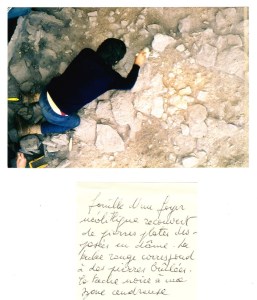 fouille d'un foyer
néolithique recouvert
de pierres plates dis-
posées en dôme. La
bulle rouge correspond
à des pierres brûlées.
la tache noire à une
zone cendreuse